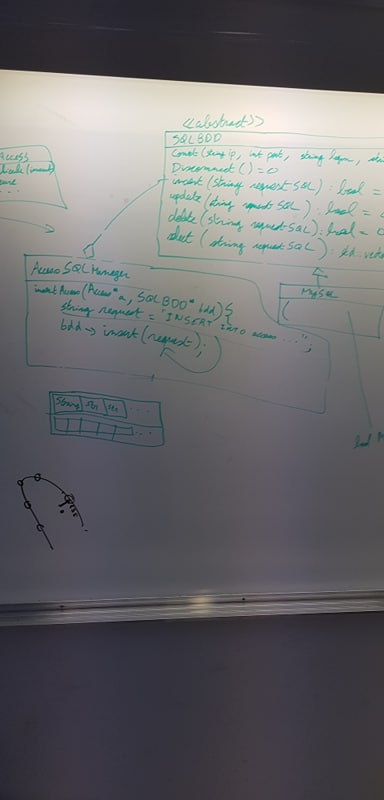 <<abstract>>
SQLBDD
Connect (string ip, int port, string login,
Disconnect () = 0
insert (string requestSQL) : bool =
update (string requestSQL) : bool =
delete (string requestSQL) : bool = 0
select (string requestSQL) :
Access
MySQL
(
AccessSQLManager
insertAccess (Access* a, SQLBDD* bdd) {
string request = "INSERT INTO access ...";
bdd -> insert (request);
string
...